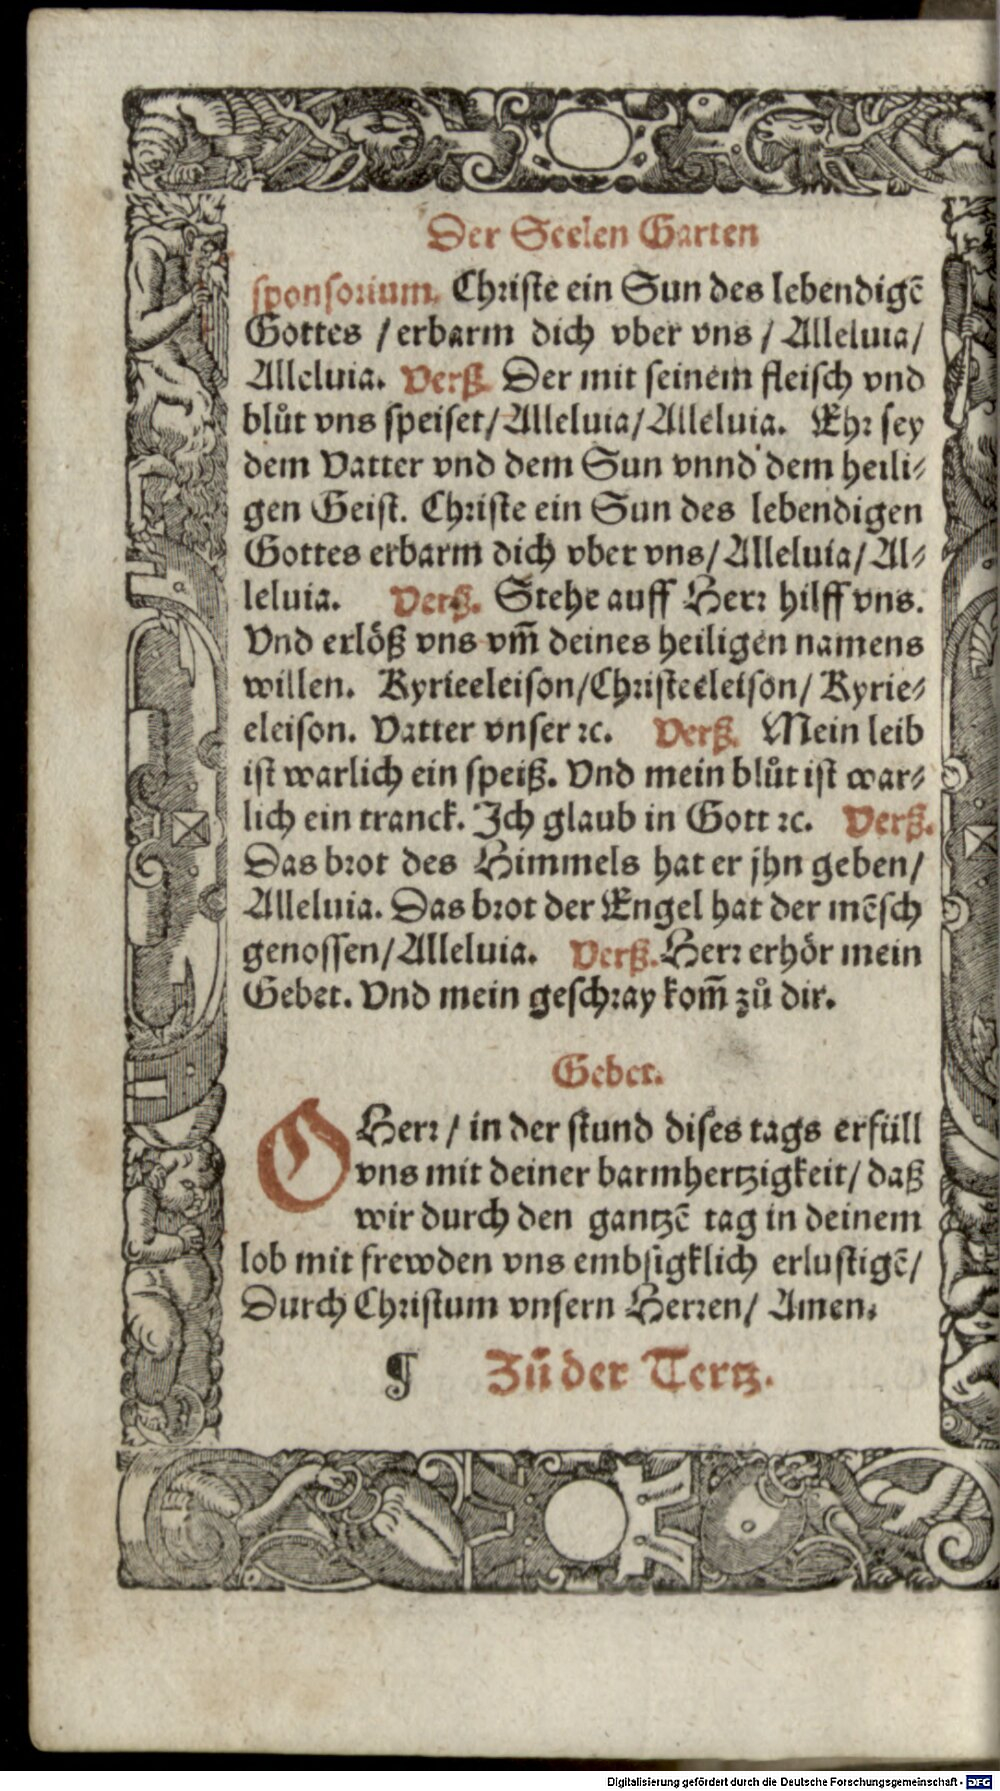 Der Seelen Garten
sponsorium. Christe ein Sun des lebendigẽ
Gottes / erbarm dich vber vns / Alleluia/
Alleluia. Verß. Der mit seinem fleisch vnd
blůt vns speiset/Alleluia/Alleluia. Ehr sey
dem Vatter vnd dem Sun vnnd dem heili⸗
gen Geist. Christe ein Sun des lebendigen
Gottes erbarm dich vber vns/Alleluia/Al⸗
leluia. Verß. Stehe auff Herr hilff vns.
Vnd erlöß vns vm̃ deines heiligen namens
willen. Kyrieeleison/Christeeleison/Kyrie⸗
eleison. Vatter vnser ⁊c. Verß. Mein leib
ist warlich ein speiß. Vnd mein blůt ist war⸗
lich ein tranck. Ich glaub in Gott ⁊c. Verß.
Das brot des Himmels hat er jhn geben/
Alleluia. Das brot der Engel hat der mẽsch
genossen/Alleluia. Verß. Herr erhör mein
Gebet. Vnd mein geschray kom̃ zů dir.
Gebet.
O Herr / in der stund dises tags erfüll
vns mit deiner barmhertzigkeit/ daß
wir durch den gantzẽ tag in deinem
lob mit frewden vns embsigklich erlustigẽ/
Durch Christum vnsern Herren/ Amen.
¶ Zů der Tertz.
Digitalisierung gefördert durch die Deutsche Forschungsgemeinschaft - DFG